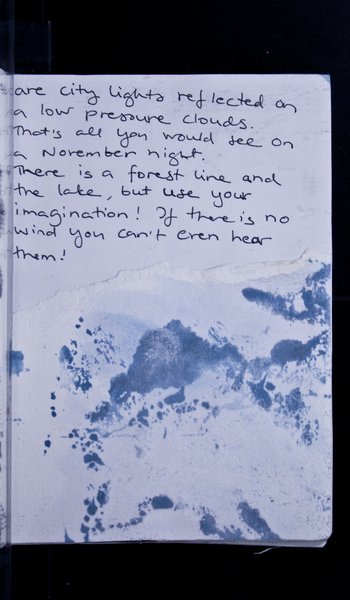 are city lights reflected on
a low pressure clouds.
That's all you would see on
a November night.
There is a forest line and
the lake, but use your
imagination! If there is no
wind you can't even hear
them!